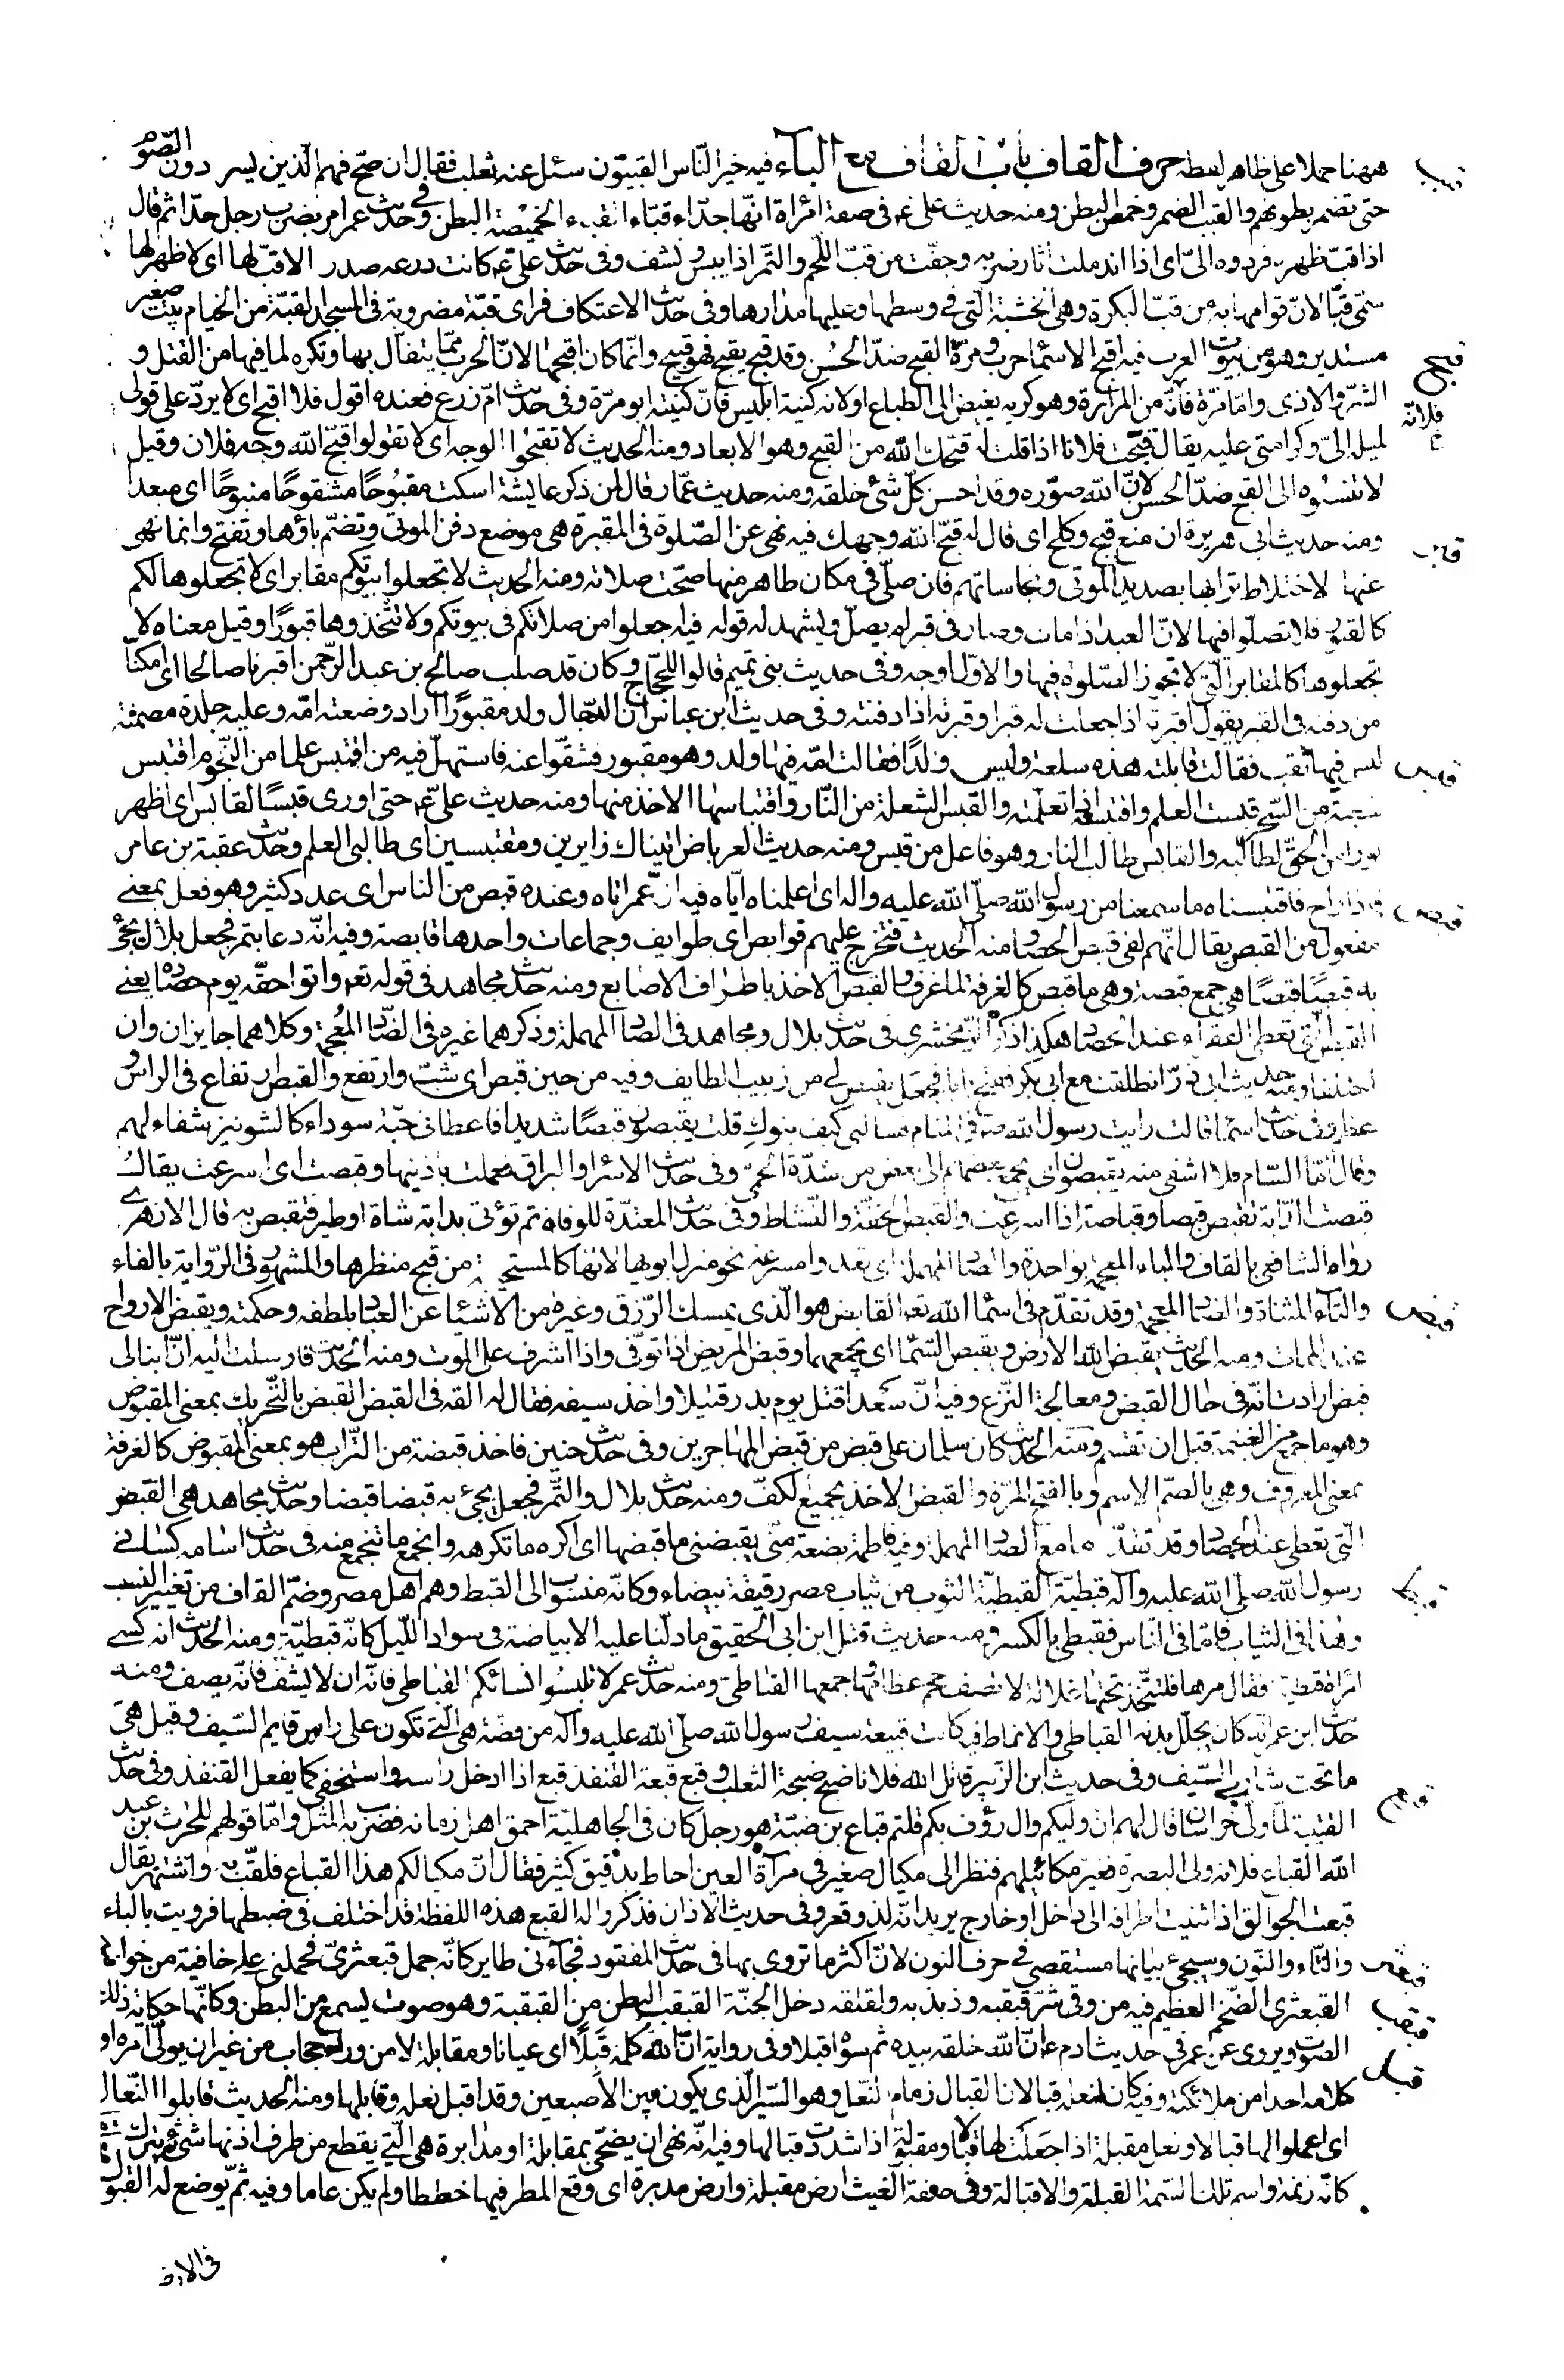 ههنا حملا على ظاهر لفظه حرف القاف باب القاف مع الباء فيه خير الناس القبيّون سئل عنه ثعلب فقال ان صحّ فهم الّذين يسر دون الصّوم
حتى تضمر بطونهم والقبب الضمر وخمص البطن ومنه حديث على ع‍م فى صفة امرأة انّها جدّاء قبّاء القباء الخميصة البطن وفى حديث عمر امر بضرب رجل حدّا ثم قال
اذا قبّ ظهره فردوه الىّ اى اذا اندملت اثار ضربه وجفّت من قبّ اللحم والتّمر اذا يبس ونشف وفى حديث علىّ ع‍م كانت درعه صدر الا قبّ لها اى لا ظهر لها
سمّى قبّا لانّ قوامها به من قبّ البكرة وهى الخشبة الّتى فى وسطها وعليها مدارها وفى حديث الاعتكاف فراى قبّة مضروبة فى المسجد القبّة من الخيام بيت صغير
مستدير وهو من بيوت العرب فيه اقبح الاسماء حرب ومرّة القبح ضدّ الحسن وقد قبح يقبح فهو قبيح وانّما كان اقبحها لانّ الحرب ممّا يتفأل بها وتكره لما فيها من القتل و
الشرّ والاذى وامّا مرّة فانّه من المرارة وهو كريه بغيض الى الطباع او لانه كنية ابليس فانّ كنيته ابو مرّة وفى حديث امّ زرع فعنده اقول فلا اقبح اى لا يردّ على قولى
لميله الىّ وكرامتى عليه يقال قبّحت فلانا اذا قلت له قبحك الله من القبح وهو الابعاد ومنه الحديث لا تقبّحوا الوجه اى لا تقولوا قبّح الله وجه فلان وقيل
لا تنسبوه الى القبح ضدّ الحسن لانّ الله صوّره وقد احسن كلّ شئ خلقه ومنه حديث عمّار قال لمن ذكر عايشة اسكت مقبوحًا مشقوحًا منبوحًا اى مبعدا
ومنه حديث ابى هريرة ان منع قبح وكلح اى قال له قبّح الله وجهك فيه نهى عن الصّلوة فى المقبرة هى موضع دفن الموتى وتضمّ باؤها وتفتح وانما نهى
عنها لاختلاط ترابها بصديد الموتى ونجاساتهم فان صلّى فى مكان طاهر منها صحّت صلاته ومنه الحديث لا تجعلوا بيوتكم مقابر اى لا تجعلوها لكم
كالقبور فلا تصلّوا فيها لانّ العبد اذا مات وصار فى قبره لم يصلّ ويشهد له قوله فيه اجعلوا من صلاتكم فى بيوتكم ولا تتّخذوها قبورًا وقيل معناه لا
تجعلوها كالمقابر الّتى لا تجوز الصّلوة فيها والاوّل اوجه وفى حديث بنى تميم قالوا للحجّاج وكان قد صلب صالح بن عبد الرّحمن اقبرنا صالحا اى امكنّا
من دفنه فى القبر يقول اقبرته اذا جعلت له قبرا وقبرته اذا دفنته وفى حديث ابن عباس ان الدّجّال ولد مقبورًا اراد وضعته امّه وعليه جلدة مصمتة
ليس فيها ثقب فقالت قابلته هذه سلعة وليس ولدًا فقالت امّه فيها ولد وهو مقبور فشقّوا عنه فاستهلّ فيه من اقتبس علما من النّجوم اقتبس
شعبة من السّحر قبست العلم واقتبسته اذا تعلّمته والقبس الشعلة من النّار واقتباسها الاخذ منها ومنه حديث علىّ ع‍م حتى اورى قبسًا لقابس اى اظهر
نورا من الحقّ لطالبه والقابس طالب النار وهو فاعل من قبس ومنه حديث العرباض اتيناك زايرين ومقتبسين اى طالبى العلم وحديث عقبة بن عامر
فاذا راح فاقتبسناه ما سمعنا من رسول الله صلّى الله عليه واله اى اعلمناه ايّاه فيه انّ عمر اتاه وعنده قبص من الناس اى عدد كثير وهو فعل بمعنى
مفعول من القبص يقال انّهم لفى قبص الحصا ومنه الحديث فتخرج عليهم قوابص اى طوايف وجماعات واحدها قابصة وفيه انّه دعا بتمر فجعل بلال يجئ
به قبصًا قبصًا هى جمع قبصة وهى ما قبص كالغرفة لما غرف والقبص الاخذ باطراف الاصابع ومنه حديث مجاهد فى قوله تعم واتوا حقّه يوم حصاده يعنى
القبص الّتى تعطى الفقراء عند الحصاد هكذا ذكر الزّمخشرى فى حديث بلال ومجاهد فى الصاد المهملة وذكرهما غيره فى الضّاد المعجمة وكلاهما جايزان وان
اختلفا ومنه حديث ابى ذرّ انطلقت مع ابى بكر ففتح بابا فجعل يقبص لى من زبيب الطايف وفيه من حين قبص اى شبّ وارتفع والقبص ارتفاع فى الراس و
عظم وفى حديث اسماء قالت رايت رسول الله ص فى المنام فسألنى كيف بنوك قلت يقبصون قبصًا شديدا فاعطانى حبّة سوداء كالشونيز شفاء لهم
وقال امّا السّام فلا اشفى منه يقبصون اى يجمع بعضهم الى بعض من شدّة الحمّى وفى حديث الاسراء والبراق فعملت باذنيها وقبصت اى اسرعت يقال
قبصت الدّابّة تقبص قبصا وقباصة اذا اسرعت والقبص الخفّة والنّشاط وفى حديث المعتدّة للوفاة ثم تؤتى بدابة شاة او طير فتقبص به قال الازهرى
رواه الشافعى بالقاف والباء المعجمة بواحدة والصاد المهملة اى تعدو مسرعة نحو منزل ابويها لانها كالمستحيية من قبح منظرها والمشهور فى الرّواية بالفاء
والتّاء المثناة والضاد المعجمة وقد تقدّم فى اسماء الله تعم القابض هو الّذى يمسك الرّزق وغيره من الاشياء عن العباد بلطفه وحكمته ويقبض الارواح
عند الممات ومنه الحديث يقبض الله الارض ويقبض السّماء اى يجمعهما وقبض المريض اذا توفّى واذا اشرف على الموت ومنه الحديث فارسلت اليه انّ ابنا لى
قبض ارادت انّه فى حال القبض ومعالجة النّزع وفيه انّ سعدا قتل يوم بدر قتيلا واخذ سيفه فقال له القه فى القبض القبض بالتّحريك بمعنى المقبوض
وهو ما جمع من الغنيمة قبل ان تقسم ومنه الحديث كان سلمان على قبض من قبض المهاجرين وفى حديث حنين فاخذ قبضة من التّراب هو بمعنى المقبوض كالغرفة
بمعنى المغروف وهى بالضمّ الاسم وبالفتح المرّة والقبض الاخذ بجميع الكفّ ومنه حديث بلال والتّمر فجعل يجئ به قبضا قبضا وحديث مجاهد هى القبض
الّتى تعطى عند الحصاد وقد تقدّما مع الصاد المهملة وفيه فاطمة بضعة منّى يقبضنى ما قبضها اى اكره ما تكرهه وانجمع ما تنجمع منه فى حديث اسامه كسانى
رسول الله صلّى الله عليه وآله قبطيّة القبطيّة الثوب من ثياب مصر رقيقة بيضاء وكانّه منسوب الى القبط وهم اهل مصر وضمّ القاف من تغيير النسب
وهذا فى الثياب فامّا فى النّاس فقبطى بالكسر ومنه حديث قتل ابن ابى الحقيق ما دلّنا عليه الا بياضه فى سواد اللّيل كانّه قبطيّة ومنه الحديث انه كسى
امرأة قبطيّة فقال مرها فلتتّخذ تحتها غلالة لا تصف حجم عظامها وجمعها القباطىّ ومنه حديث عمر لا تلبسوا نسائكم القباطى فانّه ان لا يشفّ فانّه يصف ومنه
حديث ابن عمر انّه كان يجلّل بدنه القباطى والانماط فيه كانت قبيعة سيف رسول الله صلّى الله عليه وآله من فضّة هى الّتى تكون على راس قايم السّيف وقيل هى
ما تحت شاربى السّيف وفى حديث ابن الزّبير قاتل الله فلانا ضبح ضبحة الثعلب وقبع قبعة القنفذ قبع اذا ادخل راسه واستخفى كما يفعل القنفذ وفى حديث
القتيبة لمّا ولّى خراسان قال لهم ان وليكم وال رؤف بكم قلتم قباع بن ضبّة هو رجل كان فى الجاهليّة احمق اهل زمانه فضرب به المثل وامّا قولهم للحرث بن عبد
الله القباع فلانه ولى البصرة فغيّر مكائيلهم فنظر الى مكيال صغير فى مرآة العين احاط بدقيق كثير فقال انّ مكيالكم هذا القباع فلقّب به واشتهر يقال
قبعت الجوالق اذا ثنيت اطرافه الى داخل او خارج يريد انّه لذو قعر وفى حديث الاذان فذكروا له القبع هذه اللفظة قد اختلف فى ضبطها فرويت بالباء
والتّاء والنّون وسيجئ بيانها مستقصى فى حرف النون لانّ اكثر ما تروى بها فى حديث المفقود فجاءنى طاير كانّه جمل قبعثرىّ فحملنى على خافية من خوافيه
القبعثرى الضّخم العظيم فيه من وقى شرّ قبقبه وذبذبه ولقلقه دخل الجنّة القبقب البطن من القبقبة وهو صوت يسمع من البطن وكانّها حكاية ذلك
الصوت ويروى عن عمر فى حديث ادم ع‍م انّ الله خلقه بيده ثم سوّاه قبلا وفى رواية انّ الله كلّمه قَبَلًا اى عيانا ومقابلة لا من وراء حجاب من غير ان يولّى امره او
كلامه احدا من ملائكته وفيه كان لنعله قبالان القبال زمام النّعل وهو السّير الّذى يكون بين الاصبعين وقد اقبل نعله وقابلها ومنه الحديث قابلوا النّعال
اى اعملوا لها قبالا ونعل مقبلة اذا جعلت لها قبالا ومقبولة اذا شددت قبالها وفيه انّه نهى ان يضحّى بمقابلة او مدابرة هى الّتى يقطع من طرف اذنها شئ ثم يترك
كانّه زنمة واسم تلك السّمة القبلة والاقبالة وفى صفة الغيث ارض مقبلة وارض مدبرة اى وقع المطر فيها خططا ولم يكن عاما وفيه ثمّ يوضع له القبول
فى الارض
قبب
قبح
فلانة
خ
قبر
قبس
قبص
قبض
قبط
قبع
قبعثر
قبقب
قبل